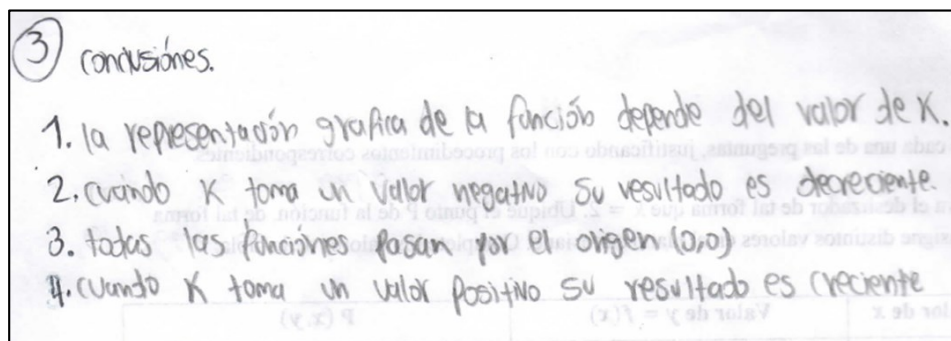 ③ conclusiónes.
1. la representación grafica de la función depende del valor de K.
2. cuando K toma un valor negativo su resultado es decreciente.
3. todas las funciónes pasan por el origen (0,0)
4. cuando K toma un valor positivo su resultado es creciente